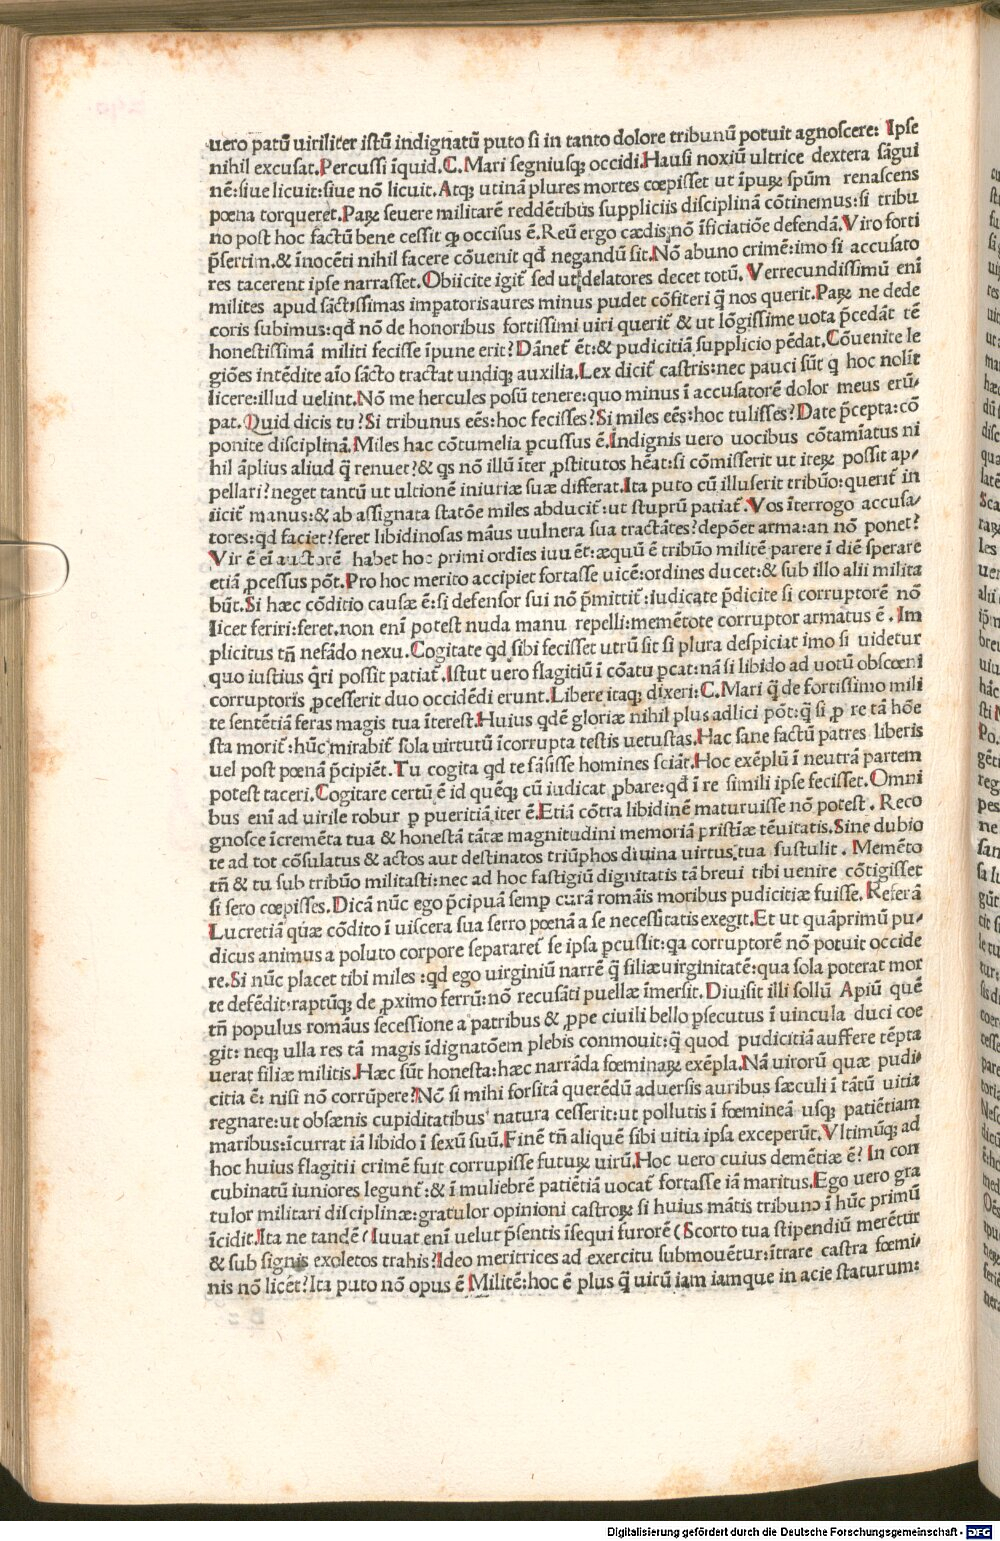 uero patū uiriliter istū indignatū puto si in tanto dolore tribunū potuit agnoscere: Ipse
nihil excusat.Percussi īquid.C.Mari segniusqꝫ occidi.Hausi noxiū ultrice dextera sāgui
nē:siue licuit:siue nō licuit.Atqꝫ utinā plures mortes cœpisset ut īpuꝝ spūm renascens
pœna torqueret.Paꝝ seuere militarē reddētibus suppliciis disciplinā cōtinemus:si tribu
no post hoc factū bene cessit ꝙ occisus ē.Reū ergo cædis nō īficiatiōe defendā.Viro forti
p̄sertim.& īnocēti nihil facere cōuenit qđ negandū sit.Nō abuno crimē:imo si accusato
res tacerent ipse narrasset.Obiicite igit̄ sed ut delatores decet totū.Verrecundissimū enī
milites apud sāctissimas impatoris aures minus pudet cōfiteri q̄ nos querit.Paꝝ ne dede
coris subimus:qđ nō de honoribus fortissimi uiri querit̄ & ut lōgissime uota p̄cedāt tē
honestissimā militi fecisse īpune erit?Dānet̄ ēt:& pudicitiā supplicio pēdat.Cōuenite le
giōes intēdite aīo sācto tractat undiqꝫ auxilia.Lex dicit̄ castris:nec pauci sūt q hoc nolīt
licere:illud uelint.Nō me hercules posū tenere:quo minus ī accusatorē dolor meus erū-
pat.Quid dicis tu?Si tribunus eēs:hoc fecisses?Si miles eēs:hoc tulisses?Date p̄cepta:cō
ponite disciplinā.Miles hac cōtumelia pcussus ē.Indignis uero uocibus cōtamīatus ni
hil āplius aliud q̄ renuet?& qs nō illū īter ꝓstitutos hēat:si cōmisserit ut iteꝝ possit ap-
pellari?neget tantū ut ultionē iniuriæ suæ differat.Ita puto cū illuserit tribūo:querit̄ in
iicit̄ manus:& ab assignata statōe miles abducit̄:ut stuprū patiat̄.Vos īterrogo accusa-
tores:qđ faciet?feret libidinosas māus uulnera sua tractātes?depōet arma:an nō ponet?
Vir ē eī auctorē habet hoc primi ordīes iuu ēt:æquū ē tribūo militē parere ī diē sperare
etiā ꝓcessus pōt.Pro hoc merito accipiet fortasse uicē:ordines ducet:& sub illo alii milita
būt.Si hæc cōditio causæ ē:si defensor sui nō p̄mittit̄:iudicate p̄dicite si corruptorē nō
licet feriri:feret.non enī potest nuda manu repelli:memētote corruptor armatus ē.Im
plicitus tn̄ nefādo nexu.Cogitate qd sibi fecisset utrū sit si plura despiciat imo si uidetur
quo iustius q̄ri possit patiat̄.Istut uero flagitiū ī cōatu pcat:nā si libido ad uotū obscœni
corruptoris ꝓcesserit duo occidēdi erunt.Libere itaqꝫ dixeri:C.Mari q̄ de fortissimo mili
te sentētiā feras magis tua īterest.Huius qdē gloriæ nihil plus adlici pōt:q̄ si ꝓ re tā hōe
sta morit̄:hūc mirabit̄ sola uirtutū īcorrupta testis uetustas.Hac sane factū patres liberis
uel post pœnā p̄cipiēt.Tu cogita qd te sāsisse homines sciāt.Hoc exēplū ī neutrā partem
potest taceri.Cogitare certū ē id quēqꝫ cū iudicat ꝓbare:qđ ī re simili ipse fecisset.Omni
bus enī ad uirile robur ꝑ pueritiā iter ē.Etiā cōtra libidinē maturuisse nō potest.Reco
gnosce īcremēta tua & honestā tātæ magnitudini memoriā pristiæ tēuitatis.Sine dubio
te ad tot cōsulatus & actos aut destinatos triūphos diuina uirtus tua sustulit.Memēto
tn̄ & tu sub tribūo militasti:nec ad hoc fastigiū dignitatis tā breui tibi uenire cōtigisset
si sero cœpisses.Dicā nūc ego p̄cipuā semp curā romāis moribus pudicitiæ fuisse.Referā
Lucretiā quæ cōdito ī uiscera sua ferro pœnā a se necessitatis exegit.Et ut quāprimū pu-
dicus animus a poluto corpore separaret̄ se ipsa pcussit:qa corruptorē nō potuit occide
re.Si nūc placet tibi miles :qd ego uirginiū narrē q̄ filiæ uirginitatē:qua sola poterat mor
te defēdit:raptūqꝫ de ꝓximo ferrū:nō recusāti puellæ īmersit.Diuisit illi sollū Apiū quē
tn̄ populus romāus secessione a patribus & ꝓpe ciuili bello ꝑsecutus ī uincula duci coe
git: neqꝫ ulla res tā magis īdignatōem plebis conmouit:q̄ quod pudicitiā auffere tēpta
uerat filiæ militis.Hæc sūt honesta:hæc narrāda fœminaꝝ exēpla.Nā uirorū quæ pudi-
citia ē: nisi nō corrūpere?Nō si mihi forsitā querēdū aduersis auribus sæculi ī tātū uitia
regnare:ut obsænis cupiditatibus natura cesserit:ut pollutis ī fœmineā usqꝫ patiētiam
maribus:īcurrat iā libido ī sexū suū.Finē tn̄ aliquē sibi uitia ipsa exceperūt.Vltimūqꝫ ad
hoc huius flagitii crimē fuit corrupisse futuꝝ uirū.Hoc uero cuius demētiæ ē? In con
cubinatū iuniores legunt̄:& ī muliebrē patiētiā uocat̄ fortasse iā maritus.Ego uero gra
tulor militari disciplinæ:gratulor opinioni castroꝝ si huius mātis tribuno ī hūc primū
īcidit.Ita ne tandē (Iuuat enī uelut p̄sentis īsequi furorē (Scorto tua stipendiū merētur
& sub signis exoletos trahis?Ideo meritrices ad exercitu submouētur:ītrare castra fœmi-
nis nō licet?Ita puto nō opus ē Militē:hoc ē plus q̄ uirū iam iamque in acie staturum:
Digitalisierung gefördert durch die Deutsche Forschungsgemeinschaft - DFG